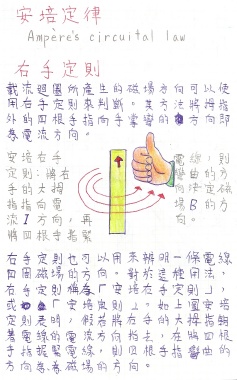 安培定律
Ampère's circuital law
右手定則
載流迴圈所產生的磁場方向可以使
用右手定則來判斷。其方法將拇指
外的四根手指向手掌彎的方向即
為電流方向。
安培右手
定則:將右
手的大拇
指指向電
流I方向,再
將四根手指緊
電線,則
曲的方
定磁
B的方
向。
右手定則也可以用來辨明一條電線
四周磁場的方向。對於這種用法,
右手定則稱為「安培右手定則」,
或「安培定則」。如上圖安培
定則表明,假若將右手的大拇指朝
著電線的電流方向指去,再將四根
手指握緊電線,則四根手指彎曲的
方向為磁場的方向。